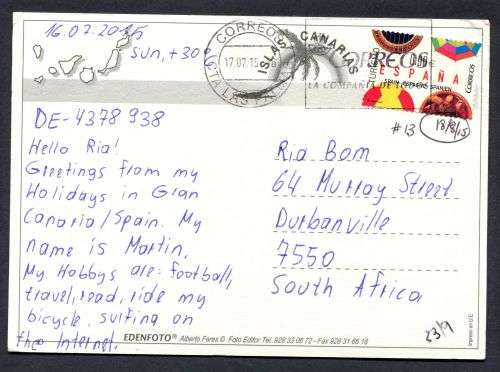 16.07.2015
sun, +30°
CORREOS
17.07.15
LAS PA
ISLAS CANARIAS
CORREOS
LA COMPAÑIA DE TO
TURISMO
ESPAÑA
CORREOS
#13
18/8/15
DE-4378938
Hello Ria!
Greetings from my
Holidays in Gran
Canaria/Spain. My
name is Martin.
My Hobbys are: football,
travel, read, ride my
bicycle, surfing on
the Internet.
Ria Bom
64 Murray Street
Durbanville
7550
South Africa
23/9
EDENFOTO® Alberto Forés © Foto Editor Tel. 928 33 06 72 - Fax 928 31 66 18
Impreso en U.E.